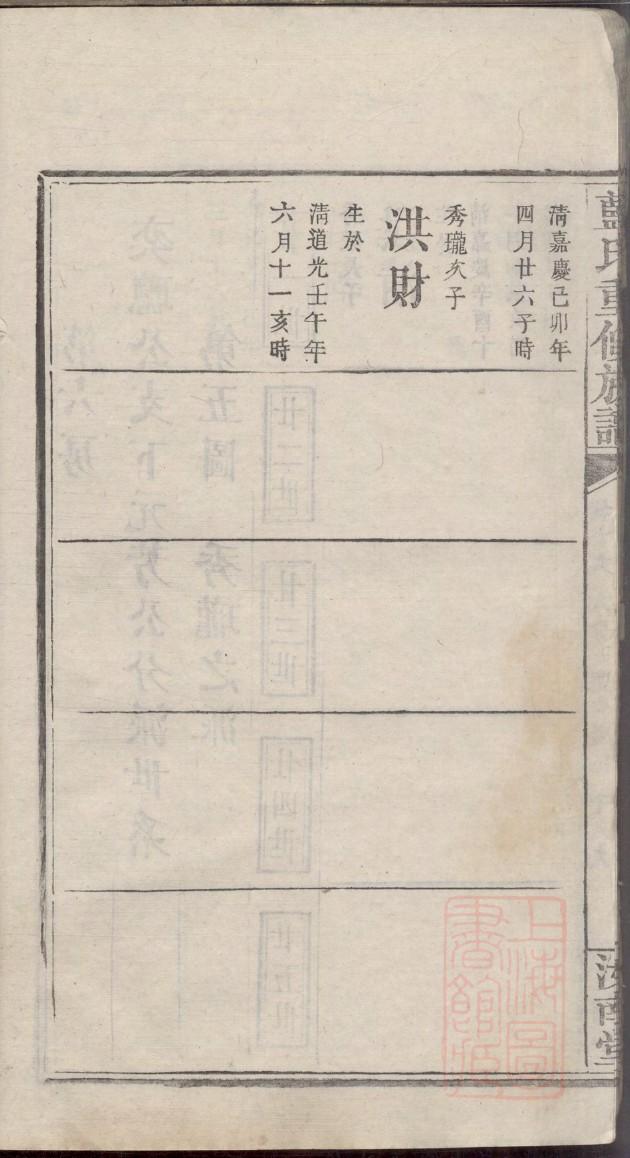 藍氏重修族譜
汝南堂
清嘉慶己卯年
四月廿六子時
秀瓏次子
洪財
生於
清道光壬午年
六月十一亥時
上海圖
書館藏